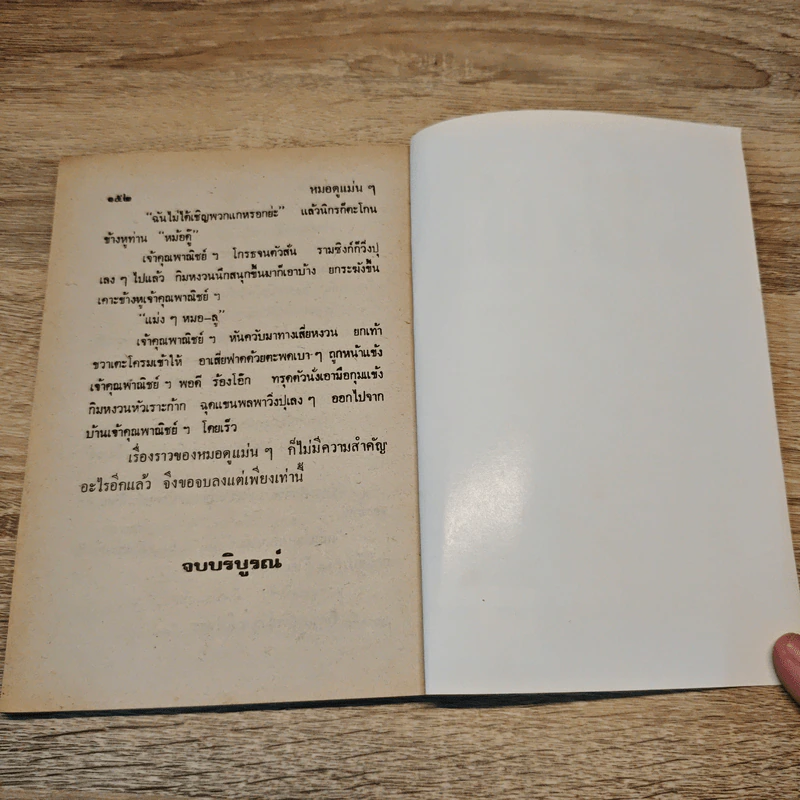 ๑๕๒
หมอดูแม่น ๆ
"ฉันไม่ได้เชิญพวกแกหรอกย่ะ" แล้วนิกรก็ตะโกน
ข้างหูท่าน "หม้อตู๊"
เจ้าคุณพาณิชย์ ฯ โกรธจนตัวสั่น รามซิงก์ก็วิ่งปุ
เลง ๆ ไปแล้ว กิมหงวนนึกสนุกขึ้นมาก็เอาบ้าง ยกระฆังขึ้น
เคาะข้างหูเจ้าคุณพาณิชย์ ฯ
"แม่ง ๆ หมอ-ลู"
เจ้าคุณพาณิชย์ ฯ หันควับมาทางเสี่ยหงวน ยกเท้า
ขวาเตะโครมเข้าให้ อาเสี่ยฟาดด้วยตะพดเบา ๆ ถูกหน้าแข้ง
เจ้าคุณพาณิชย์ ฯ พอดี ร้องโอ๊ก ทรุดตัวนั่งเอามือกุมแข้ง
กิมหงวนหัวเราะก๊าก ฉุดแขนพลพาวิ่งปุเลง ๆ ออกไปจาก
บ้านเจ้าคุณพาณิชย์ ฯ โดยเร็ว
เรื่องราวของหมอดูแม่น ๆ ก็ไม่มีความสำคัญ
อะไรอีกแล้ว จึงขอจบลงแต่เพียงเท่านี้
จบบริบูรณ์